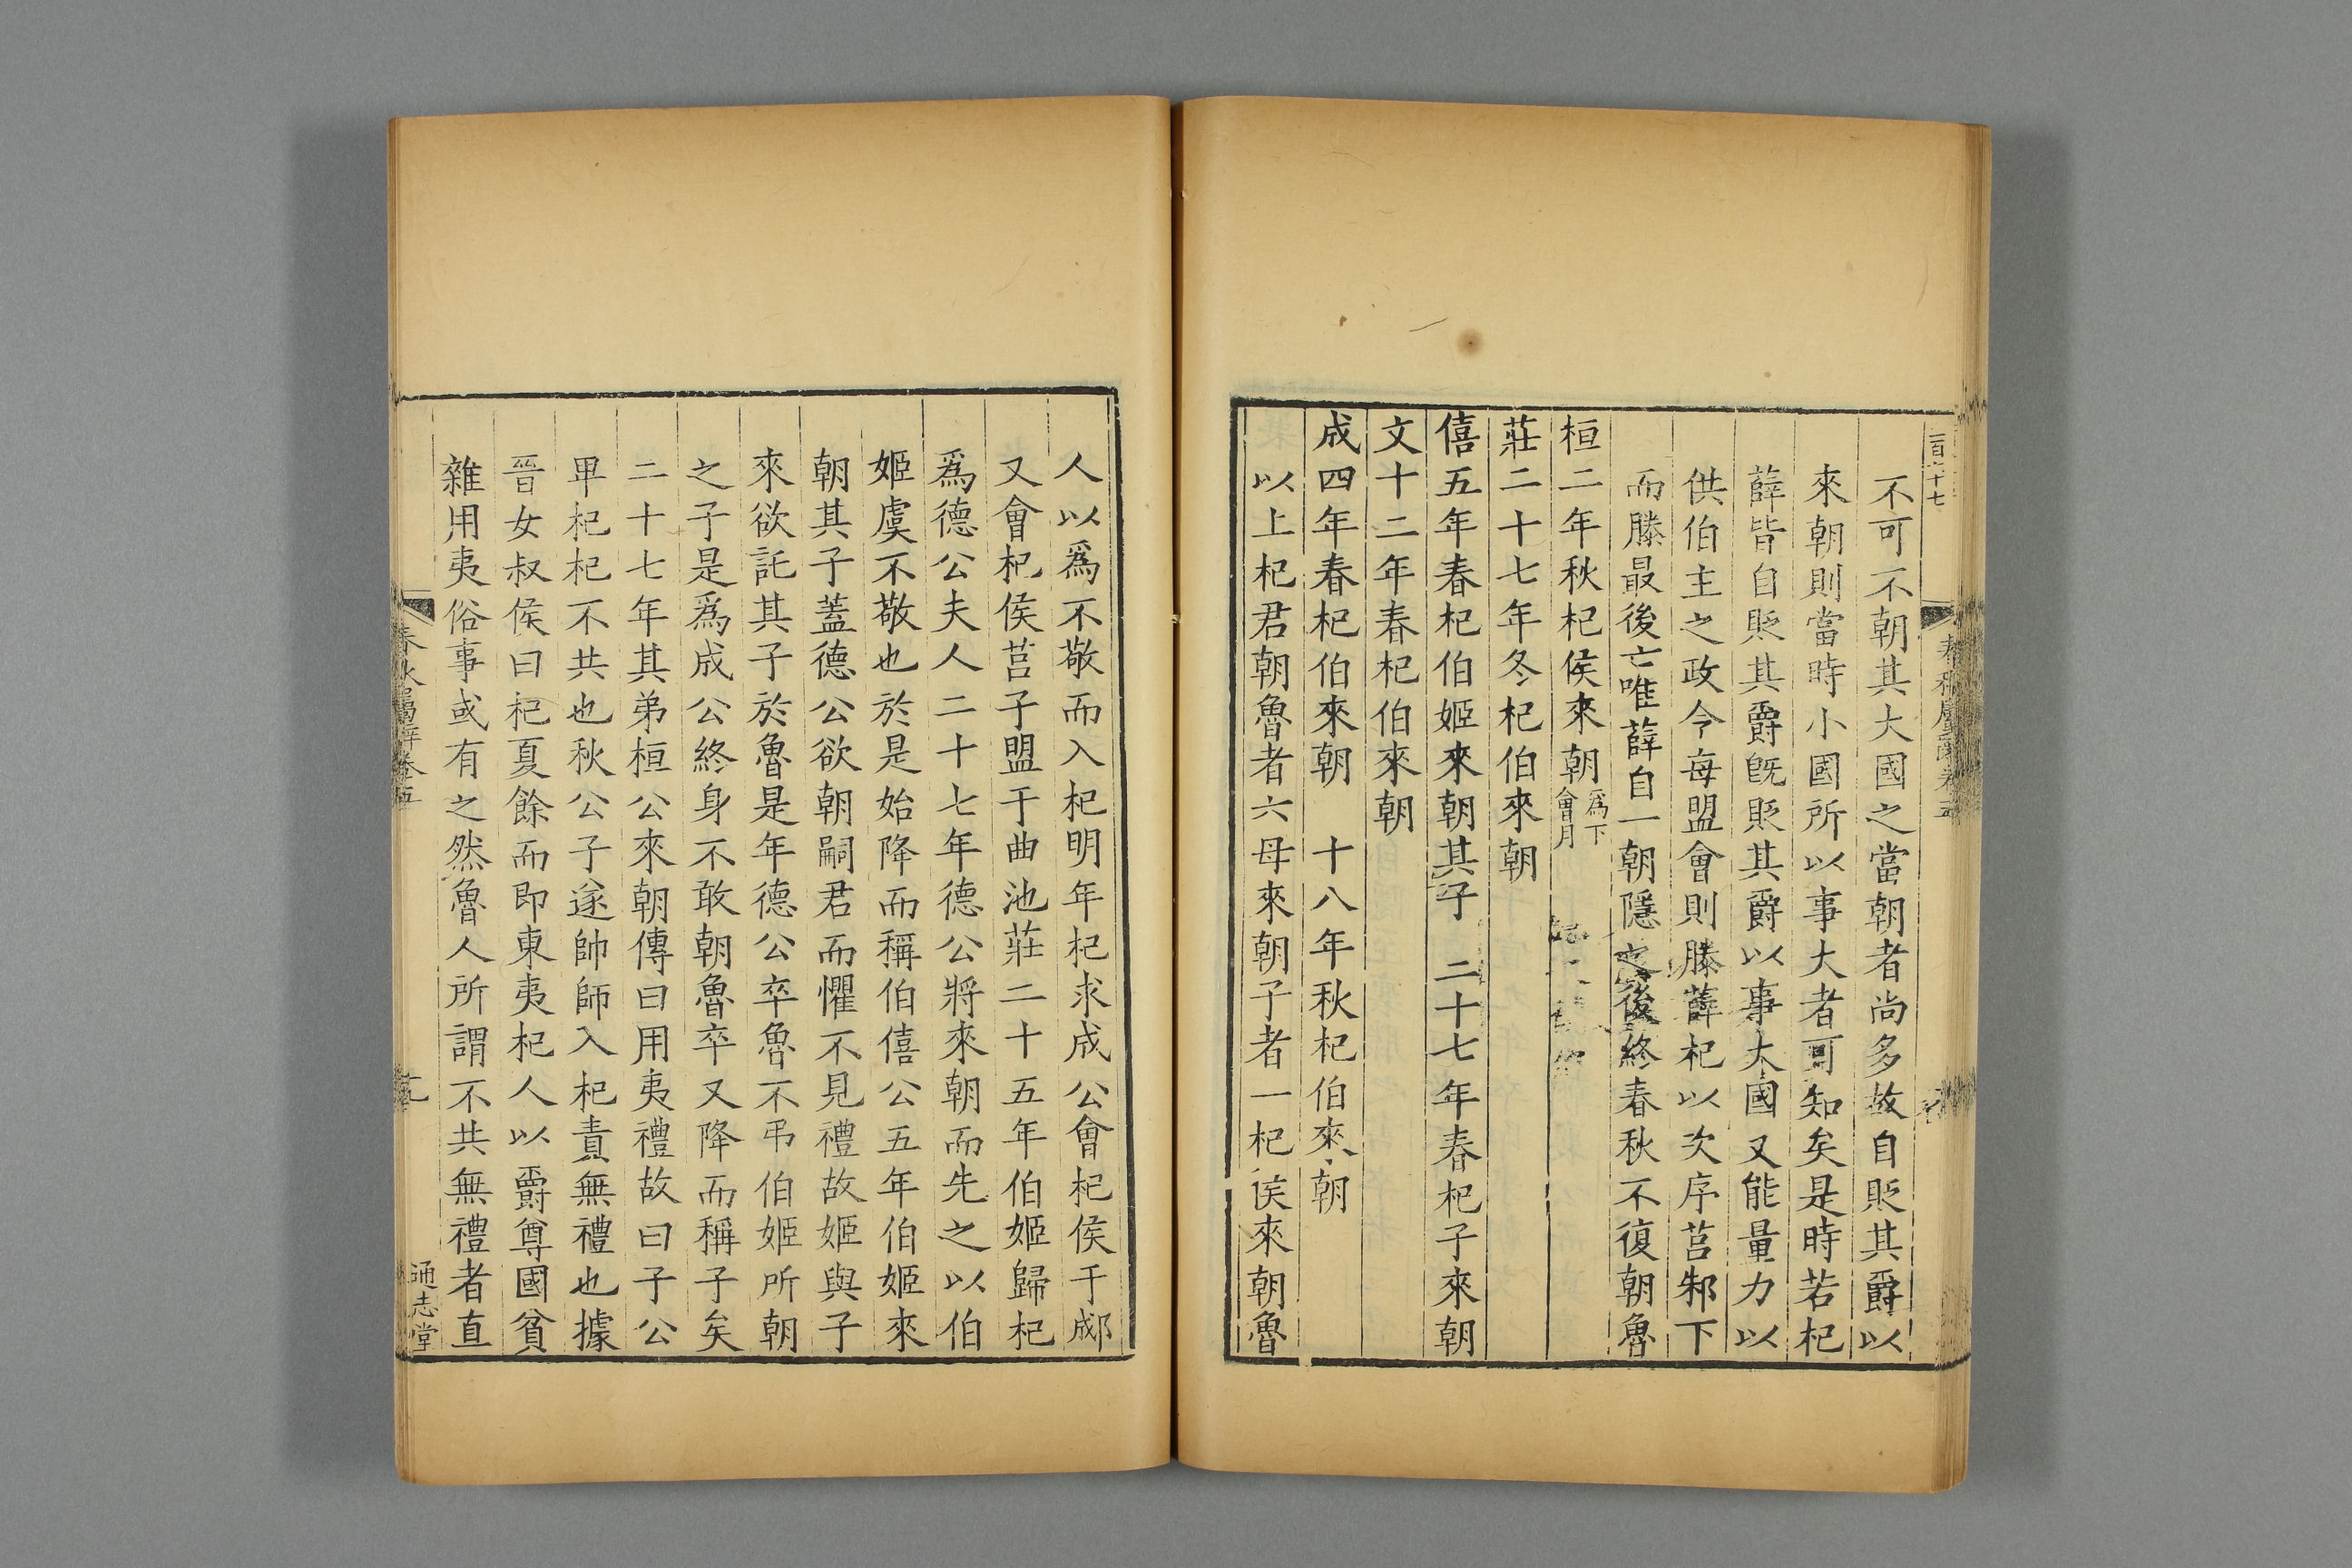 一百六十七
不可不朝其大國之當朝者尚多故自貶其爵以
來朝則當時小國所以事大者可知矣是時若杞
薛皆自貶其爵旣貶其爵以事大國又能量力以
供伯主之政今每盟會則滕薛杞以次序莒邾下
而滕最後亡唯薛自一朝隱之後終春秋不復朝魯
桓二年秋杞侯來朝爲下會月
莊二十七年冬杞伯來朝
僖五年春杞伯姬來朝其子 二十七年春杞子來朝
文十二年春杞伯來朝
成四年春杞伯來朝 十八年秋杞伯來朝
以上杞君朝魯者六母來朝子者一杞侯來朝魯
人以爲不敬而入杞明年杞求成公會杞侯于郕
又會杞侯莒子盟于曲池莊二十五年伯姬歸杞
爲德公夫人二十七年德公將來朝而先之以伯
姬虞不敬也於是始降而稱伯僖公五年伯姬來
朝其子蓋德公欲朝嗣君而懼不見禮故姬與子
來欲託其子於魯是年德公卒魯不弔伯姬所朝
之子是爲成公終身不敢朝魯卒又降而稱子矣
二十七年其弟桓公來朝傳曰用夷禮故曰子公
卑杞杞不共也秋公子遂帥師入杞責無禮也據
晉女叔侯曰杞夏餘而即東夷杞人以爵尊國貧
雜用夷俗事或有之然魯人所謂不共無禮者直
春秋屬辭卷五
通志堂